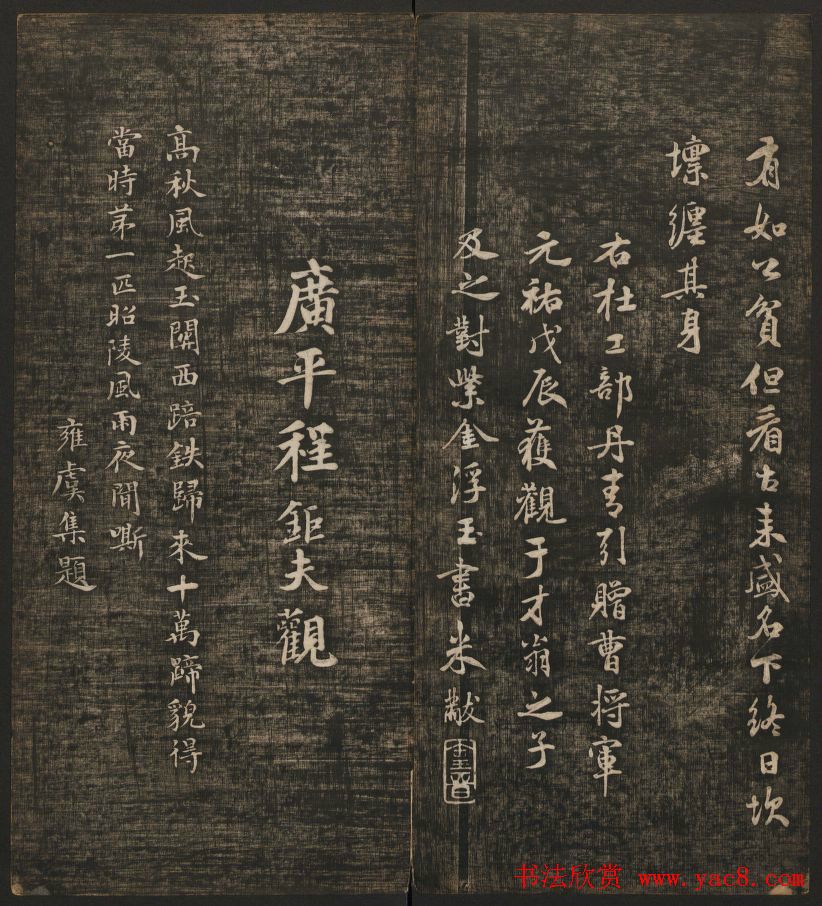 有如公貧但看古来盛名下終日坎
壈纏其身
右杜工部丹青引贈曹将軍
元祐戊辰獲觀于才翁之子
及之對紫金浮玉書米黻
廣平程鉅夫觀
高秋風起玉關西踣鉄歸来十萬蹄貌得
當時苐一匹昭陵風雨夜聞嘶
雍虞集題
书法欣赏 www.yac8.com